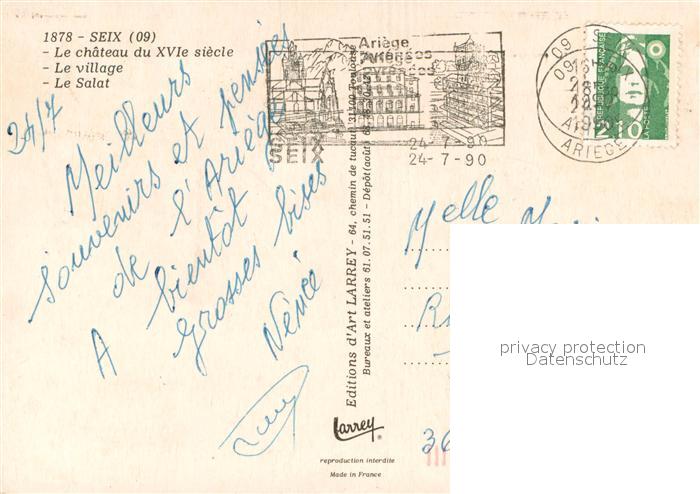 1878 - SEIX (09)
- Le château du XVIe siècle
- Le village
- Le Salat
24/7
Meilleurs
souvenirs et pensées
de l'Ariége
A bientôt
Grosses bises
Ariège
SEIX
24-7-90
24-7-90
09
ARIEGE
2,10
Editions d'Art LARREY - 64, chemin de tucaut 31100 Toulouse
Bureaux et ateliers 61.07.51.51 - Dépôt (août)
Larrey
®
reproduction interdite
Made in France
Melle
privacy protection
Datenschutz